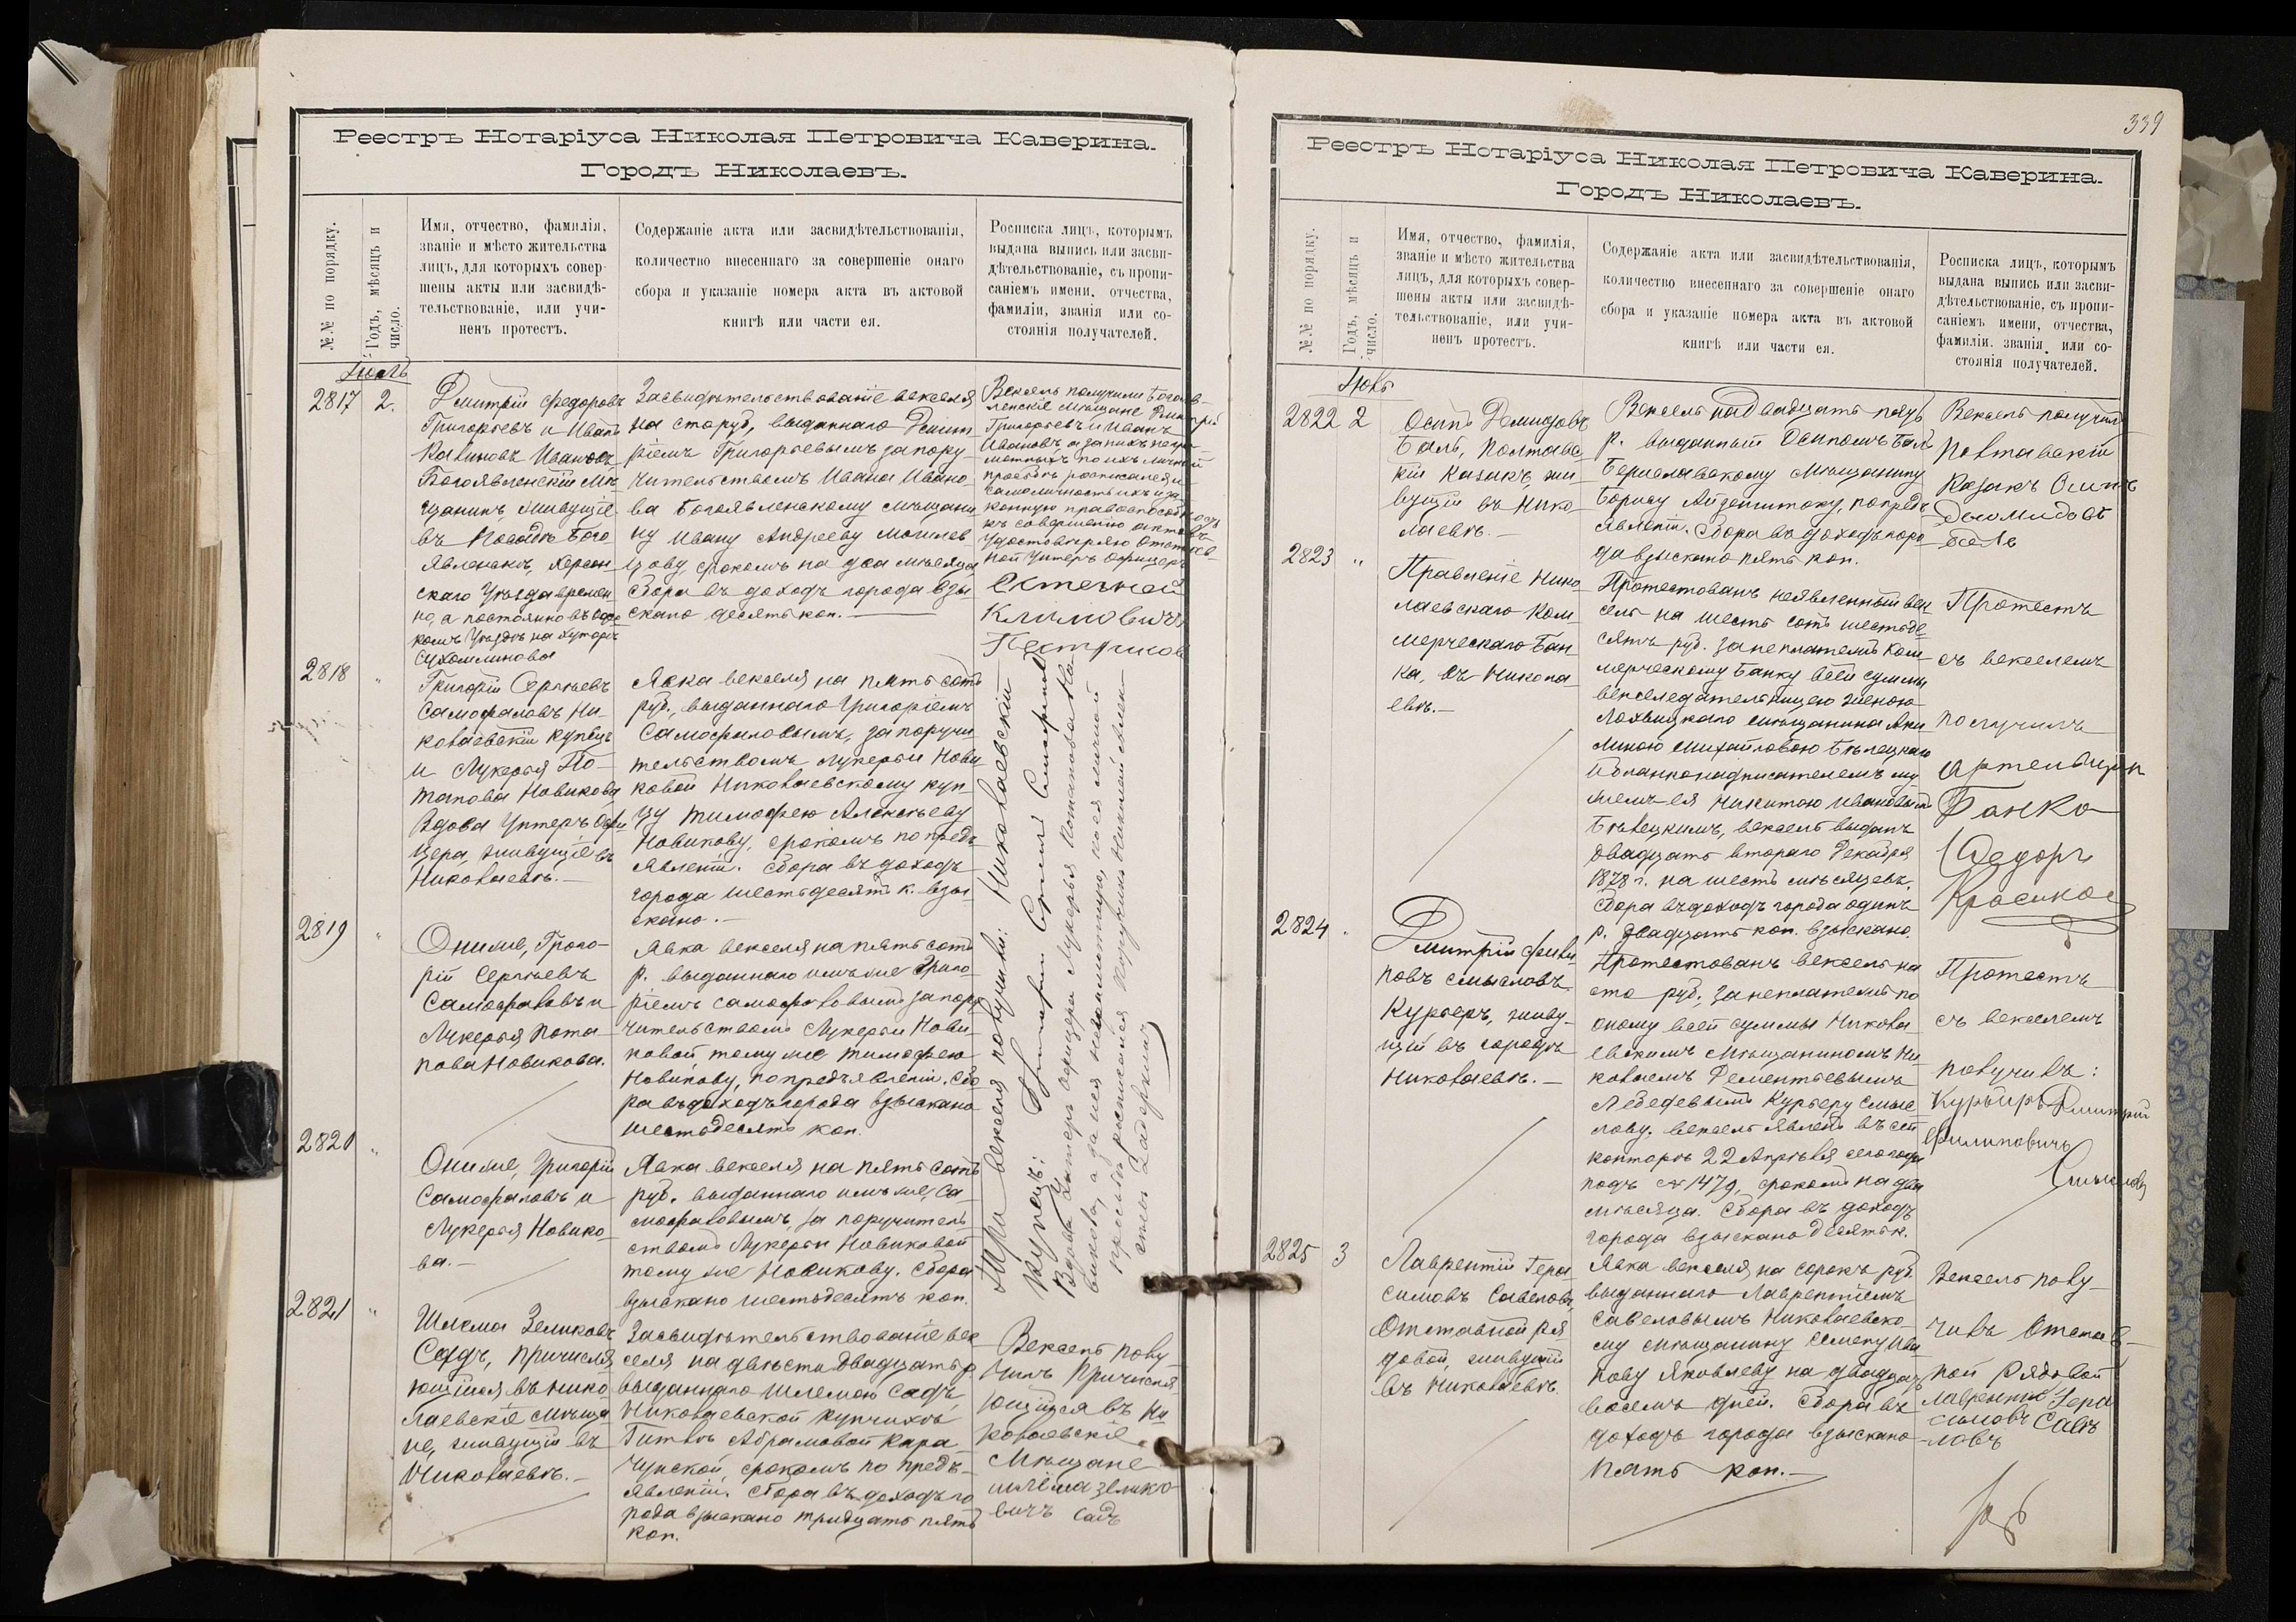 Реестръ Нотаріуса Николая Петровича Каверина.
Городъ Николаевъ.
№№ по порядку.
Годъ, мѣсяцъ и
число.
Имя, отчество, фамилія,
званіе и мѣсто жительства
лицъ, для которыхъ совер-
шены акты или засвидѣ-
тельствованіе, или учи-
ненъ протестъ.
Содержаніе акта или засвидѣтельствованія,
количество внесеннаго за совершеніе онаго
сбора и указаніе номера акта въ актовой
книгѣ или части ея.
Росписка лицъ, которымъ
выдана выпись или засви-
дѣтельствованіе, съ пропи-
саніемъ имени, отчества,
фамиліи, званія или со-
стоянія получателей.
Іюль
2817 2.
Дмитрій Федоровъ
Григорьевъ и Иванъ
Ивановъ
Богоявленскій Мѣ-
щанинъ, живущіе
въ Посадѣ Бого
явленскѣ, Херсон-
скаго Уѣзда времен-
но, а постоянно въ
комъ Уѣздѣ на хуторѣ
Сухомлинова
Засвидѣтельствованіе векселя
на сто руб., выданнаго Дмит
ріемъ Григорьевымъ за пору-
чительствомъ Ивана Ивано
ва Богоявленскому мѣщани
ну Ивану Андрееву
цову, срокомъ на два мѣсяца
Сбора въ доходъ города взы
скано десять коп. —
Вексель получили Богояв-
ленскіе мѣщане Дмитрій
Григорьевъ и Иванъ
Ивановъ, а за нихъ негра-
мотныхъ по ихъ личной
просьбѣ росписался и
самоличность ихъ и за-
конную правоспособность
къ совершенію актовъ
удостовѣряю Отстав-
ной Унтеръ Офицеръ
Климовичъ
2818 "
Григорій Сергѣевъ
Самофаловъ Ни-
колаевскій купецъ
и Лукерья По-
тапова Новикова
Вдова Унтеръ Офи
цера, живущіе въ
Николаевѣ. —
Явка векселя на пять сотъ
руб., выданнаго Григоріемъ
Самофаловымъ, за поручи
тельствомъ Лукерьи Нови
ковой Николаевскому куп
цу Тимофею Алексѣеву
Новикову, срокомъ по предъ
явленіи. Сбора въ доходъ
города шестьдесятъ к. взы-
скано. —
2819 "
Они же, Григо-
рій Сергѣевъ
Самофаловъ и
Лукерья Пота
пова Новикова.
Явка векселя на пять сотъ
р. выданнаго имъ же Григо
ріемъ Самофаловымъ за пору
чительствомъ Лукерьи Нови
ковой тому же Тимофею
Новикову, по предъявленіи. Сбо
ра въ доходъ города взыскано
шестьдесятъ коп.
2820 "
Они же, Григорій
Самофаловъ и
Лукерья Новико-
ва. —
Явка векселя на пять сотъ
руб. выданнаго имъ же, Са-
мофаловымъ, за поручитель
ствомъ Лукерьи Новиковой
тому же Новикову. Сбора
взыскано шестьдесятъ коп.
Три векселя получили: Николаевскій
купецъ: Григорій Сергѣевъ Самофаловъ
Вдова Унтеръ Офицера Лукерья Потапова Но-
викова, а за нея неграмотную, по ея личной
просьбѣ росписался
2821 "
Шлема Зеликовъ
Садъ, причисля
ющійся въ Нико
лаевскіе мѣща
не, живущій въ
Николаевѣ. —
Засвидѣтельствованіе век
селя на двѣсти двадцать р.
выданнаго Шлемою Садъ,
Николаевской купчихѣ
Гитлѣ Абрамовой Кара
чунской, срокомъ по предъ-
явленіи. Сбора въ доходъ го
рода взыскано тридцать пять
коп.
Вексель полу
чилъ Причисля-
ющійся въ Ни
колаевскіе
Мѣщане
Шлема Зелико
вичъ Садъ
339
Реестръ Нотаріуса Николая Петровича Каверина.
Городъ Николаевъ.
№№ по порядку.
Годъ, мѣсяцъ и
число.
Имя, отчество, фамилія,
званіе и мѣсто жительства
лицъ, для которыхъ совер-
шены акты или засвидѣ-
тельствованіе, или учи-
ненъ протестъ.
Содержаніе акта или засвидѣтельствованія,
количество внесеннаго за совершеніе онаго
сбора и указаніе номера акта въ актовой
книгѣ или части ея.
Росписка лицъ, которымъ
выдана выпись или засви-
дѣтельствованіе, съ пропи-
саніемъ имени, отчества,
фамиліи. званія или со-
стоянія получателей.
Іюль
2822 2
Осипъ Демидовъ
Баль, Полтавс
кій казакъ, жи
вущій въ Нико
лаевѣ. —
Вексель на двадцать пять
р. выданный Осипомъ Баль
Бериславскому мѣщанину
Борису Айзенштоку, по предъ
явленіи. Сбора въ доходъ горо
да взыскано пять коп.
Вексель получилъ
Полтавскій
Казакъ Осипъ
2823 "
Правленіе Нико
лаевскаго Ком
мерческаго Бан
ка, въ Никола
евѣ. —
Протестованъ неявленный век
сель на шесть сотъ шестьде
сятъ руб. за неплатежъ Ком
мерческому Банку всей суммы
векселедательницею женою
Лохвицкаго мѣщанина Аки
линою Михайловою Бѣлецкою
и бланконадписателемъ му
жемъ ея Никитою Ивановымъ
Бѣлецкимъ, вексель выданъ
двадцать втораго Декабря
1878 г. на шесть мѣсяцевъ.
Сбора въ доходъ города одинъ
р. двадцать коп. взыскано.
Протестъ
съ векселемъ
получилъ
артельщик
Банка
Федоръ
2824 "
Дмитрій Филип
повъ Смысловъ
Курьеръ, живу-
щій въ городѣ
Николаевѣ. —
Протестованъ вексель на
сто руб., за неплатежъ по
оному всей суммы Никола
евскимъ мѣщаниномъ Ни
колаемъ Дементьевымъ
Лебедевымъ Курьеру Смыс
лову. Вексель явленъ въ сей
конторѣ 22 Апрѣля сего года
подъ № 1479, срокомъ на два
мѣсяца. Сбора въ доходъ
города взыскано десять к.
Протестъ
съ векселемъ
получилъ:
Курьеръ Дмитрій
Филиповичъ
Смысловъ
2825 3
Лаврентій Гера
симовъ Савеловъ,
Отставной ря
довой, живущій
въ Николаевѣ.
Явка векселя, на сорокъ руб.
выданнаго Лаврентіемъ
Савеловымъ Николаевско-
му мѣщанину Семену Ива
нову Яковлеву на двадцать
восемь дней. Сбора въ
доходъ города взыскано
пять коп. —
Вексель полу-
чилъ Отстав-
ной Рядовой
Лаврентій Гера
симовъ Савѣ
ловъ